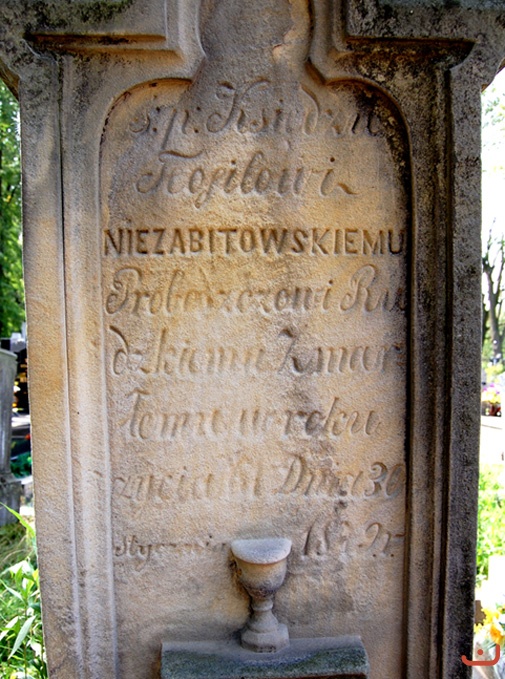 ś: p: Księdzu
NIEZABITOWSKIEMU
Proboszczowi Ru
dzkiemu Zmar
łemu w roku
życia Dnia 30
Stycznia